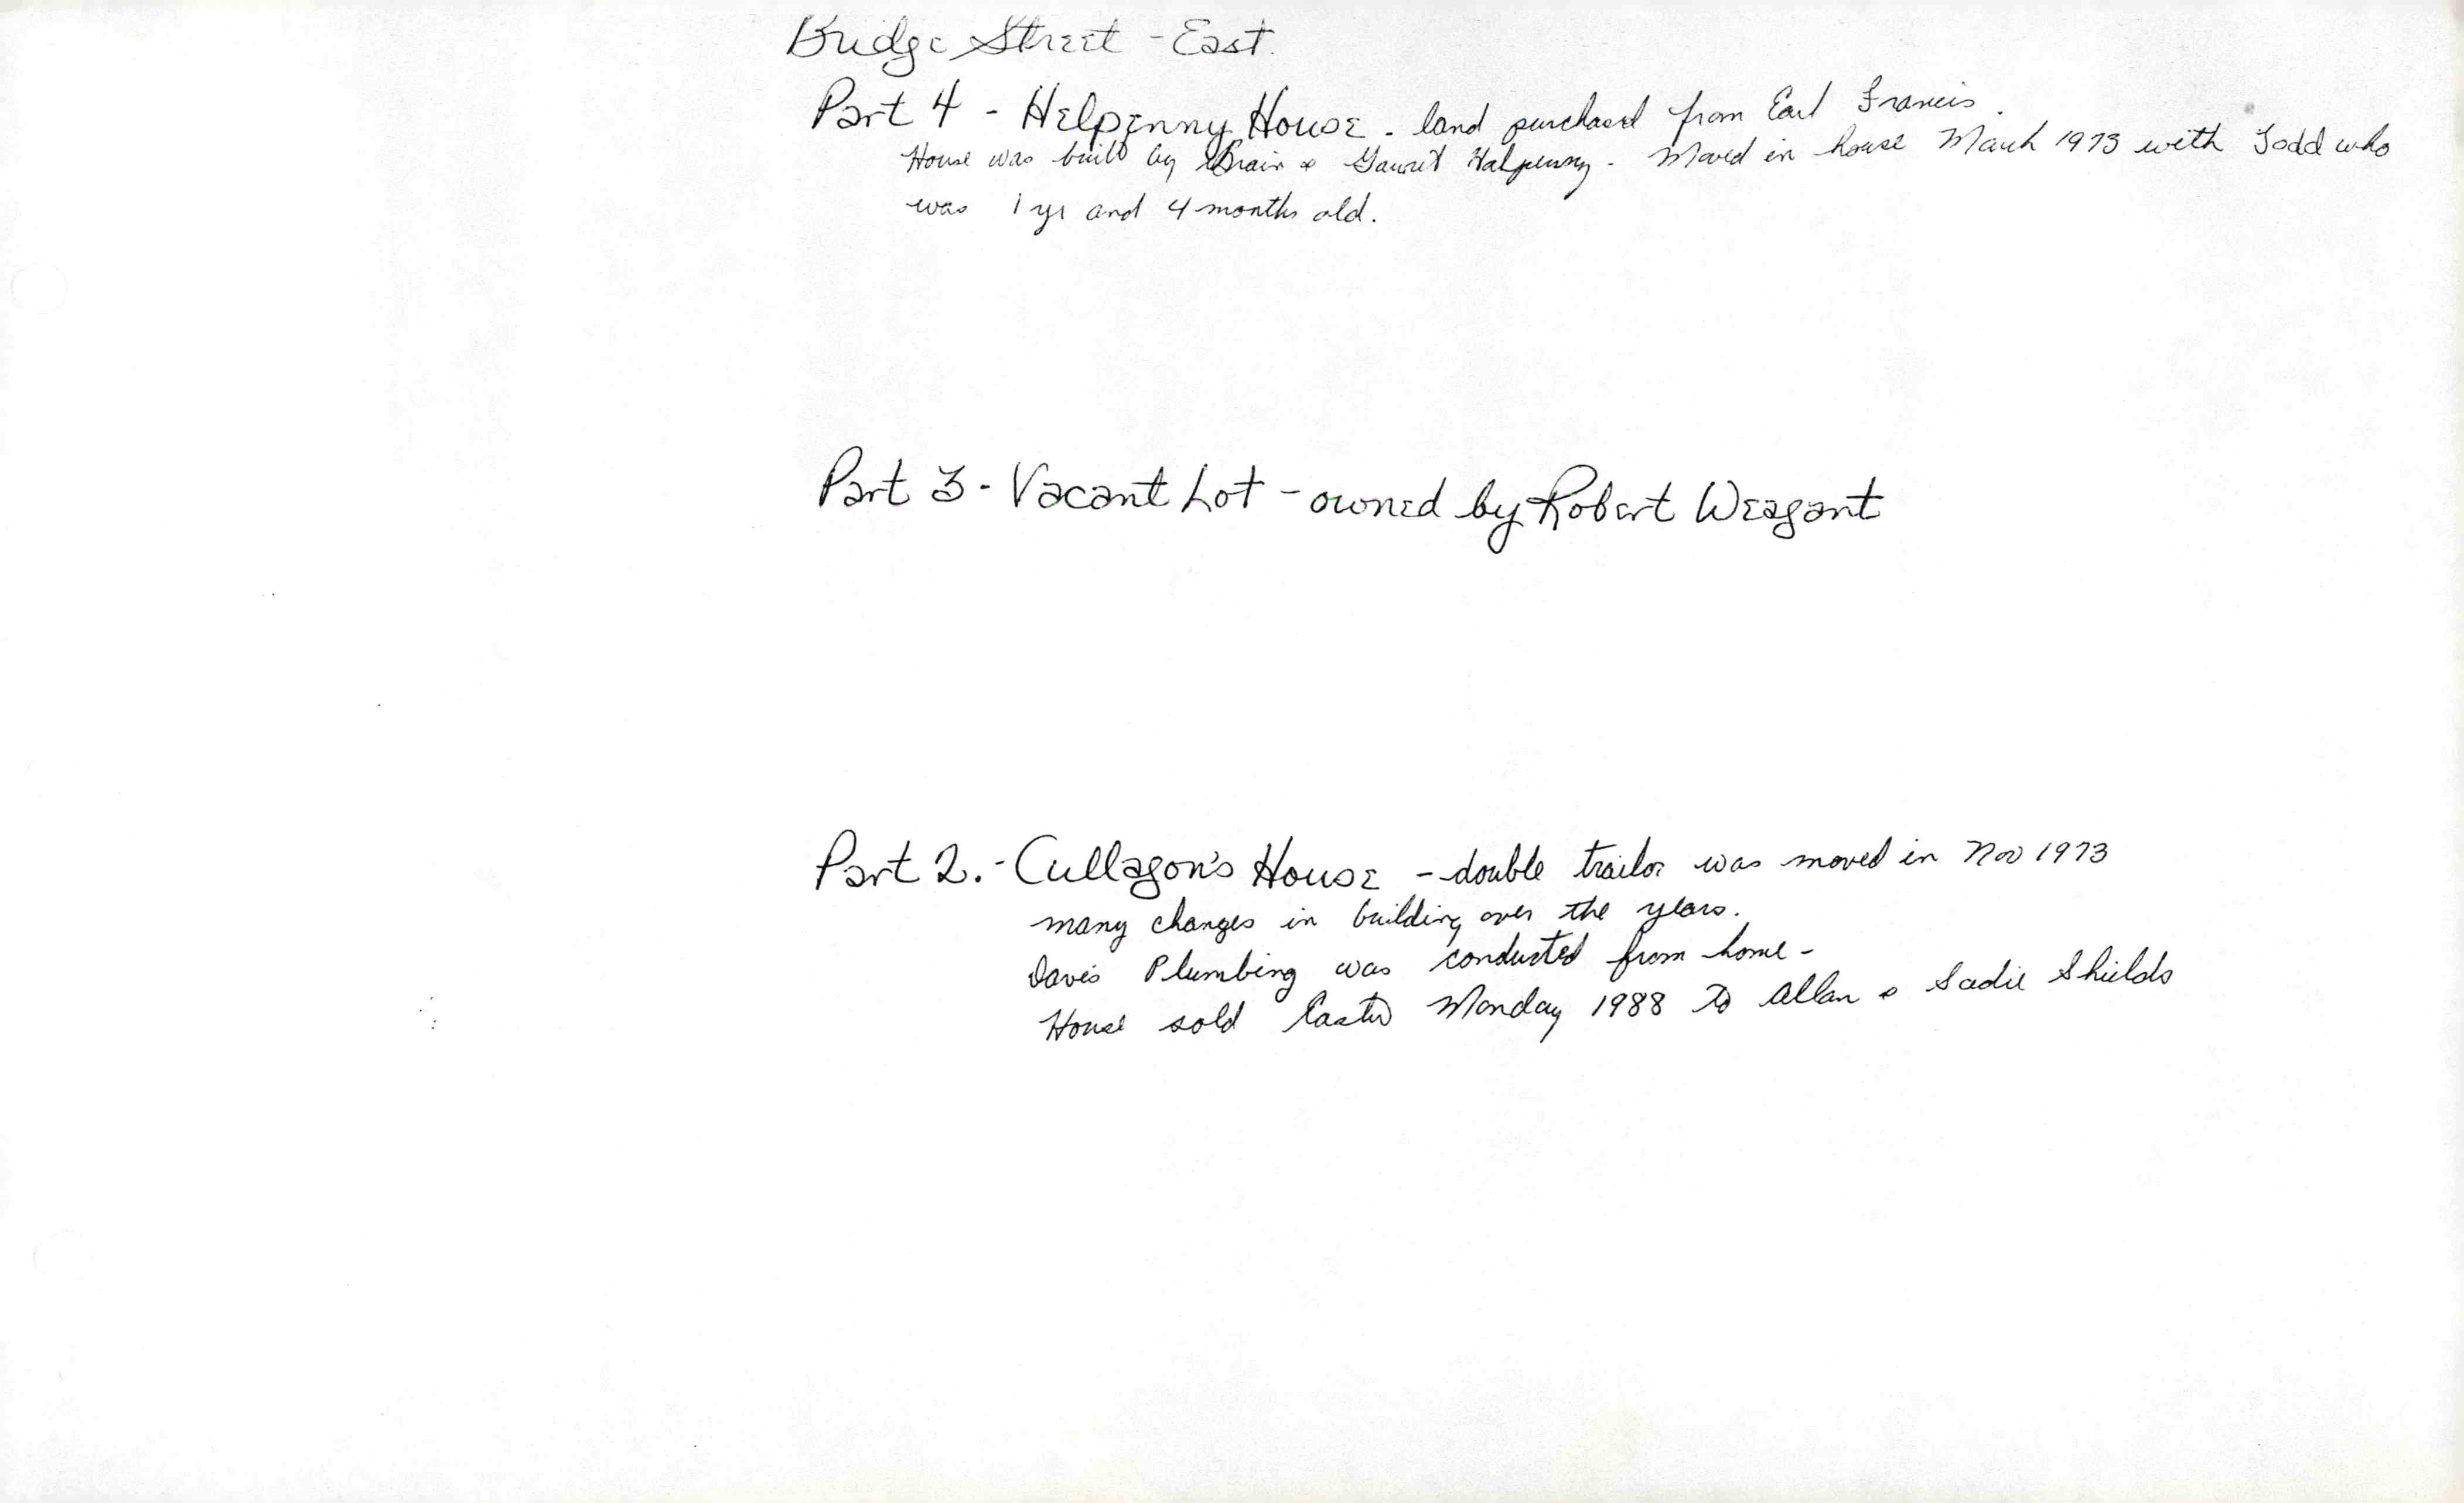 Bridge Street - East.
Part 4 - Helpenny House - land purchased from Earl Francis.
House was built by Brain & Halpenny. Moved in house March 1973 with Todd who
was 1 yr and 4 months old.
Part 3 - Vacant Lot - owned by Robert Weagant
Part 2. - Cullagon's House - double trailor was moved in Nov 1973
many changes in building over the years.
Dave's Plumbing was conducted from home -
House sold Easter Monday 1988 to Allan & Sadie Shields